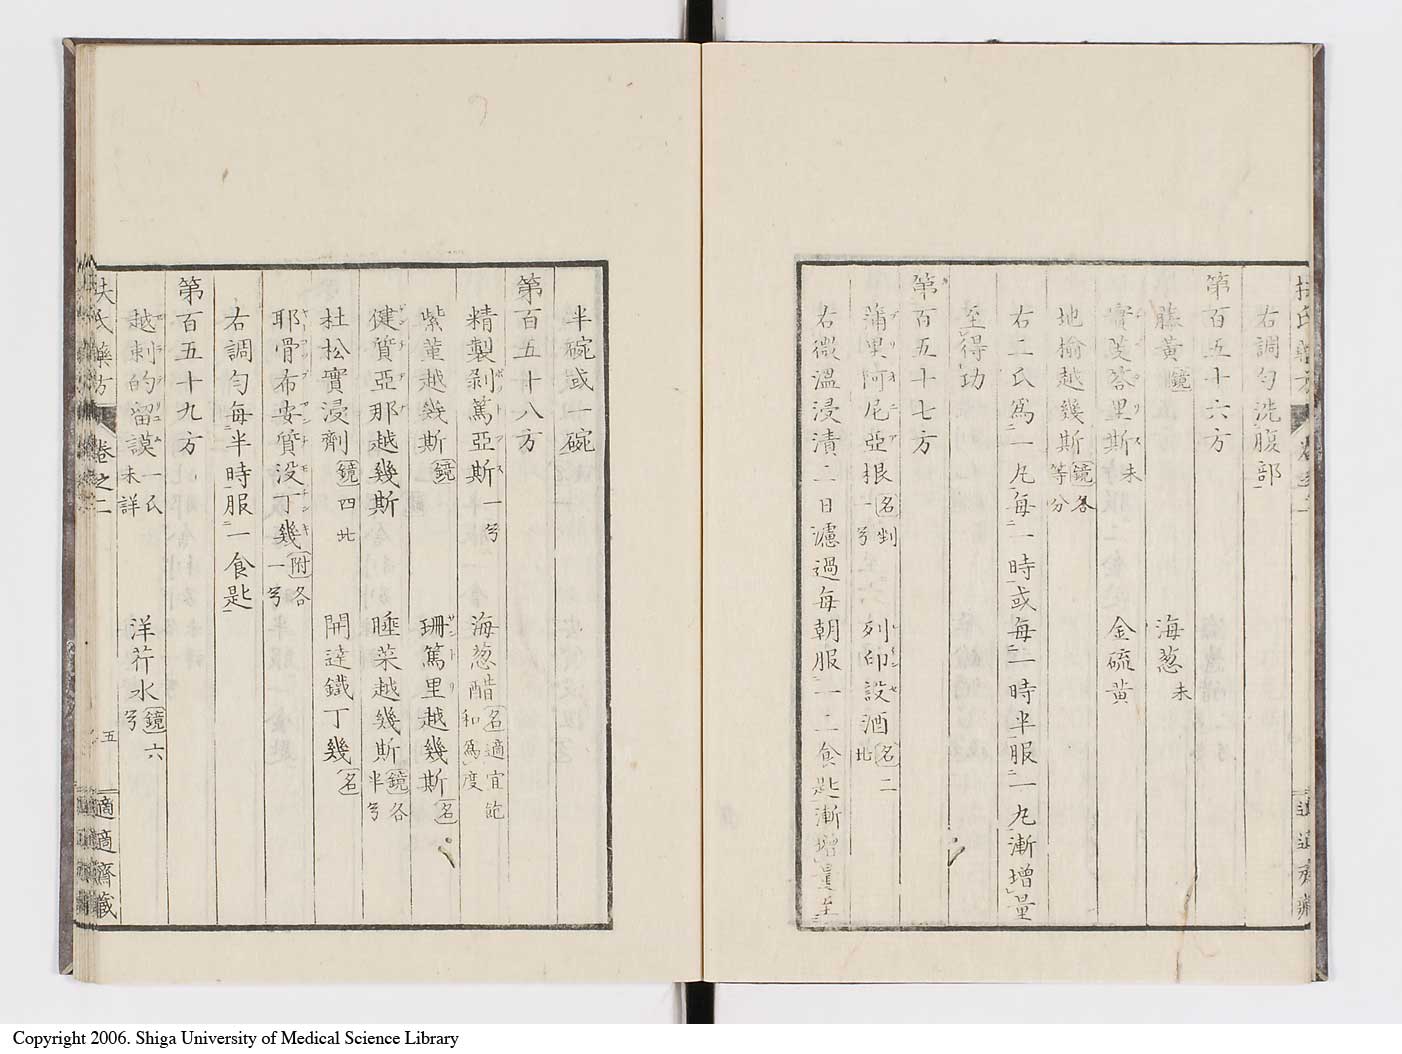 右調勻洗腹部
第百五十六方
藤黃 鏡 海葱 末
實芰荅里斯 末 金硫黃
地榆越幾斯 鏡各等分
右二氏爲一丸每一時或每二時半服一丸漸增量
至得功
第百五十七方
蒲里阿尼亞根 名剉一兮 列印設酒 名二北
右微溫浸漬二日濾過每朝服一二食匙漸增量至
半碗或一碗
第百五十八方
精製剝篤亞斯 一兮 海葱醋 名適宜飽和爲度
紫菫越幾斯 鏡 珊篤里越幾斯 名
健質亞那越幾斯 睡菜越幾斯 鏡各半兮
杜松實浸劑 鏡四北 開達鐵丁幾 名
耶骨布安質没丁幾 附各一兮
右調勻每半時服一食匙
第百五十九方
越刺的留謨 一氏未詳 洋芥水 鏡六兮
扶氏藥方 卷之二 五 適適齋藏
Copyright 2006. Shiga University of Medical Science Library